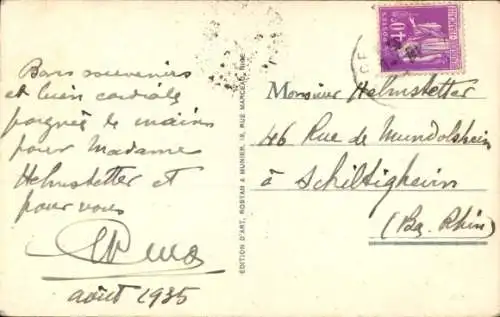 Bons souvenirs
et bien cordiale
poignée de mains
pour Madame
Helmstetter et
pour vous
août 1935
EDITION D'ART, ROSTAN & MUNIER, 18, RUE MARCEAU, NICE
40c
POSTES
Monsieur Helmstetter
46 Rue de Mundolsheim
à Schiltigheim
(Bas. Rhin)